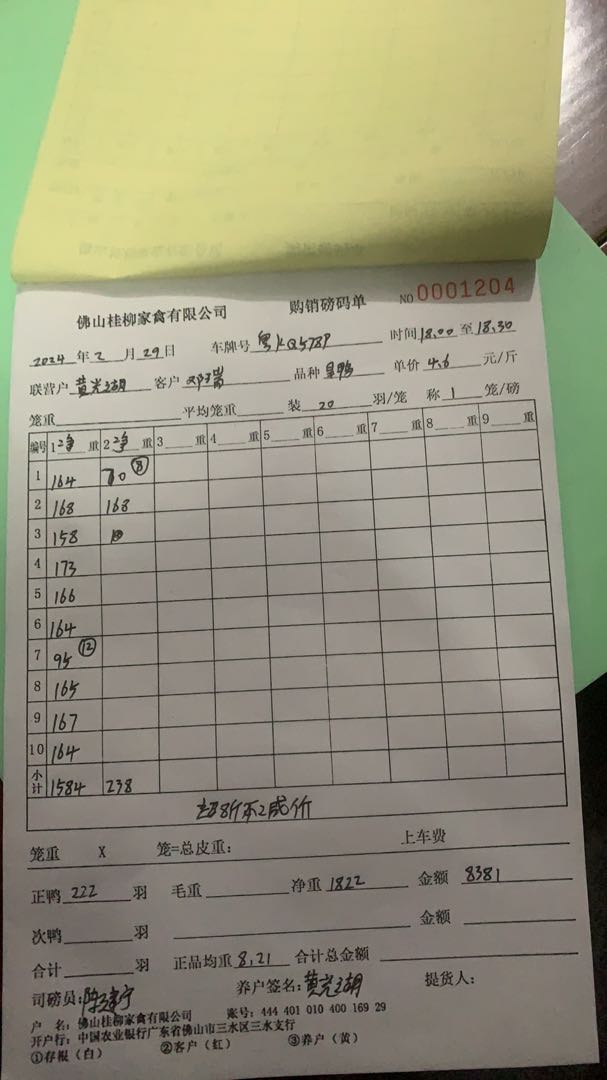 佛山桂柳家禽有限公司 购销磅码单 NO 0001204
2024年2月29日 车牌号 粤KQ578P 时间18.00至18.30
联营户 黄光湖 客户 邓瑞 品种 单价 4.6 元/斤
笼重 平均笼重 装 20 羽/笼 称 1 笼/磅
编号 1净重 2净重 3重 4重 5重 6重 7重 8重 9重
1 164 70 ⑧
2 168 168
3 158
4 173
5 166
6 164
7 95 ⑫
8 165
9 167
10 164
小计 1584 238
超8斤不2成价
笼重 X 笼=总皮重: 上车费
正鸭 222 羽 毛重 净重 1822 金额 8381
次鸭 羽 金额
合计 羽 正品均重 8.21 合计总金额
司磅员: 陈建宁 养户签名: 黄光湖 提货人:
户 名: 佛山桂柳家禽有限公司 账号: 444 401 010 400 169 29
开户行: 中国农业银行广东省佛山市三水区三水支行
①存根（白） ②客户（红） ③养户（黄）